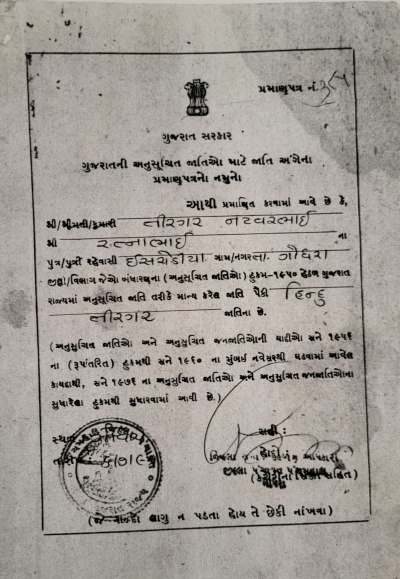 પ્રમાણપત્ર નં.
ગુજરાત સરકાર
ગુજરાતની અનુસૂચિત જાતિઓ માટે જાતિ અંગેના
પ્રમાણપત્રનો નમુનો
આથી પ્રમાણિત કરવામાં આવે છે કે,
શ્રી/શ્રીમતી/કુમારી તીરગર નટવરભાઈ
શ્રી રત્નાભાઈ ના
પુત્ર/પુત્રી રહેવાસી ગામ/નગર તા. ગોધરા
જીલ્લા/વિભાગ જેઓ બંધારણના (અનુસૂચિત જાતિઓ) હુકમ-૧૯૫૦ હેઠળ ગુજરાત
રાજ્યમાં અનુસૂચિત જાતિ તરીકે માન્ય કરેલ જાતિ પૈકી હિન્દુ
તીરગર જાતિના છે.
(અનુસૂચિત જાતિઓ અને અનુસૂચિત જનજાતિઓની યાદીઓ સને ૧૯૫૬
ના (રૂપાંતરિત) હુકમથી સને ૧૯૬૦ ના મુંબઈ નવેસરથી ઘડવામાં આવેલ
કાયદાથી, સને ૧૯૭૬ ના અનુસૂચિત જાતિઓ અને અનુસૂચિત જનજાતિઓના
સુધારેલા હુકમથી સુધારવામાં આવી છે.)
સ્થળ
સહી :
તારીખ
(જે બાબતો લાગુ ન પડતા હોય તે છેકી નાંખવા)